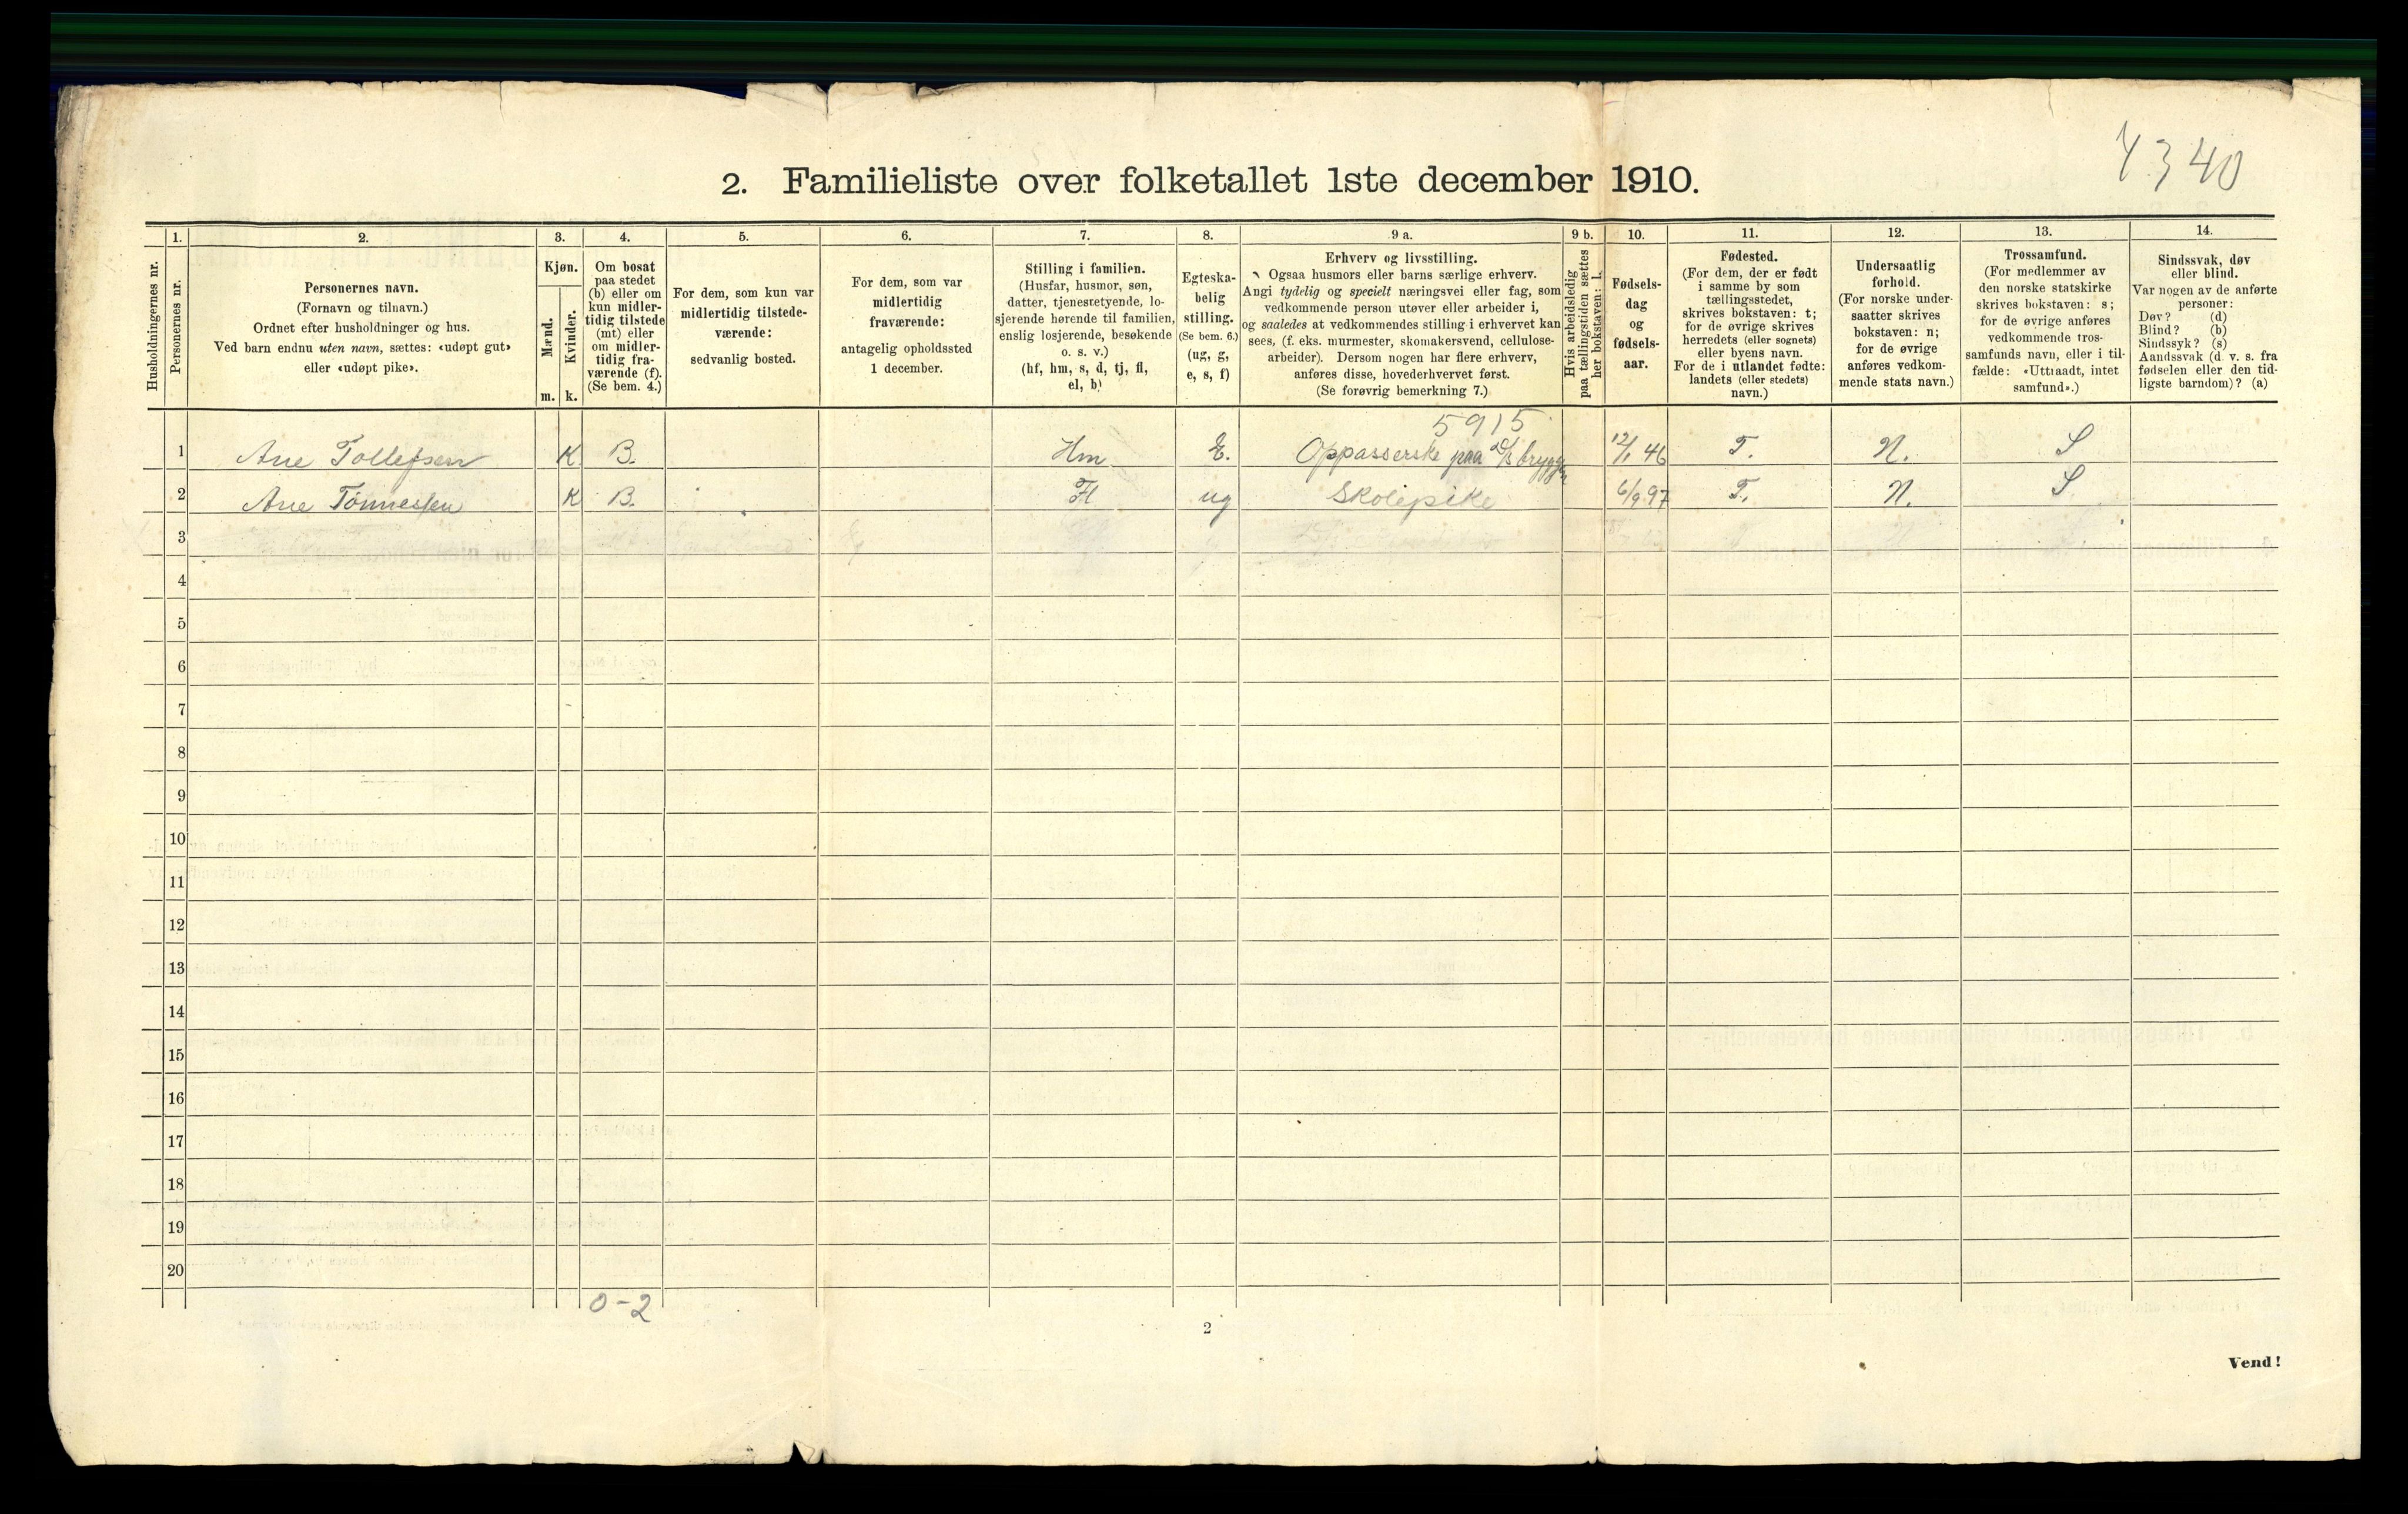 4340
2. Familieliste over folketallet 1ste december 1910.
Husholdningernes nr.
1.
Personernes nr.
2.
Personernes navn.
(Fornavn og tilnavn.)
Ordnet efter husholdninger og hus.
Ved barn endnu uten navn, sættes: «udøpt gut»
eller «udøpt pike».
3.
Kjøn.
Mænd.
Kvinder.
m. k.
4.
Om bosat
paa stedet
(b) eller om
kun midler-
tidig tilstede
(mt) eller
om midler-
tidig fra-
værende (f).
(Se bem. 4.)
5.
For dem, som kun var
midlertidig tilstede-
værende:
sedvanlig bosted.
6.
For dem, som var
midlertidig
fraværende:
antagelig opholdssted
1 december.
7.
Stilling i familien.
(Husfar, husmor, søn,
datter, tjenestetyende, lo-
sjerende hørende til familien,
enslig losjerende, besøkende
o. s. v.)
(hf, hm, s, d, tj, fl,
el, b)
8.
Egteska-
belig
stilling.
(Se bem. 6.)
(ug, g,
e, s, f)
9 a.
Erhverv og livsstilling.
Ogsaa husmors eller barns særlige erhverv.
Angi tydelig og specielt næringsvei eller fag, som
vedkommende person utøver eller arbeider i,
og saaledes at vedkommendes stilling i erhvervet kan
sees, (f. eks. murmester, skomakersvend, cellulose-
arbeider). Dersom nogen har flere erhverv,
anføres disse, hovederhvervet først.
(Se forøvrig bemerkning 7.)
9 b.
Hvis arbeidsledig
paa tællingstiden sættes
her bokstaven: l.
10.
Fødsels-
dag
og
fødsels-
aar.
11.
Fødested.
(For dem, der er født
i samme by som
tællingsstedet,
skrives bokstaven: t;
for de øvrige skrives
herredets (eller sognets)
eller byens navn.
For de i utlandet fødte:
landets (eller stedets)
navn.)
12.
Undersaatlig
forhold.
(For norske under-
saatter skrives
bokstaven: n;
for de øvrige
anføres vedkom-
mende stats navn.)
13.
Trossamfund.
(For medlemmer av
den norske statskirke
skrives bokstaven: s;
for de øvrige anføres
vedkommende tros-
samfunds navn, eller i til-
fælde: «Uttraadt, intet
samfund».)
14.
Sindssvak, døv
eller blind.
Var nogen av de anførte
personer:
Døv? (d)
Blind? (b)
Sindssyk? (s)
Aandssvak (d. v. s. fra
fødselen eller den tid-
ligste barndom)? (a)
5915
1 Ane Tollefsen K B. Hm E. Oppasserske paa D/S brygge 12/1 46 T. N. S
2 Ane Tønnessen K B. Fl ug Skolepike 6/9 97 T. N. S
3
4
5
6
7
8
9
10
11
12
13
14
15
16
17
18
19
20
0-2
2
Vend!